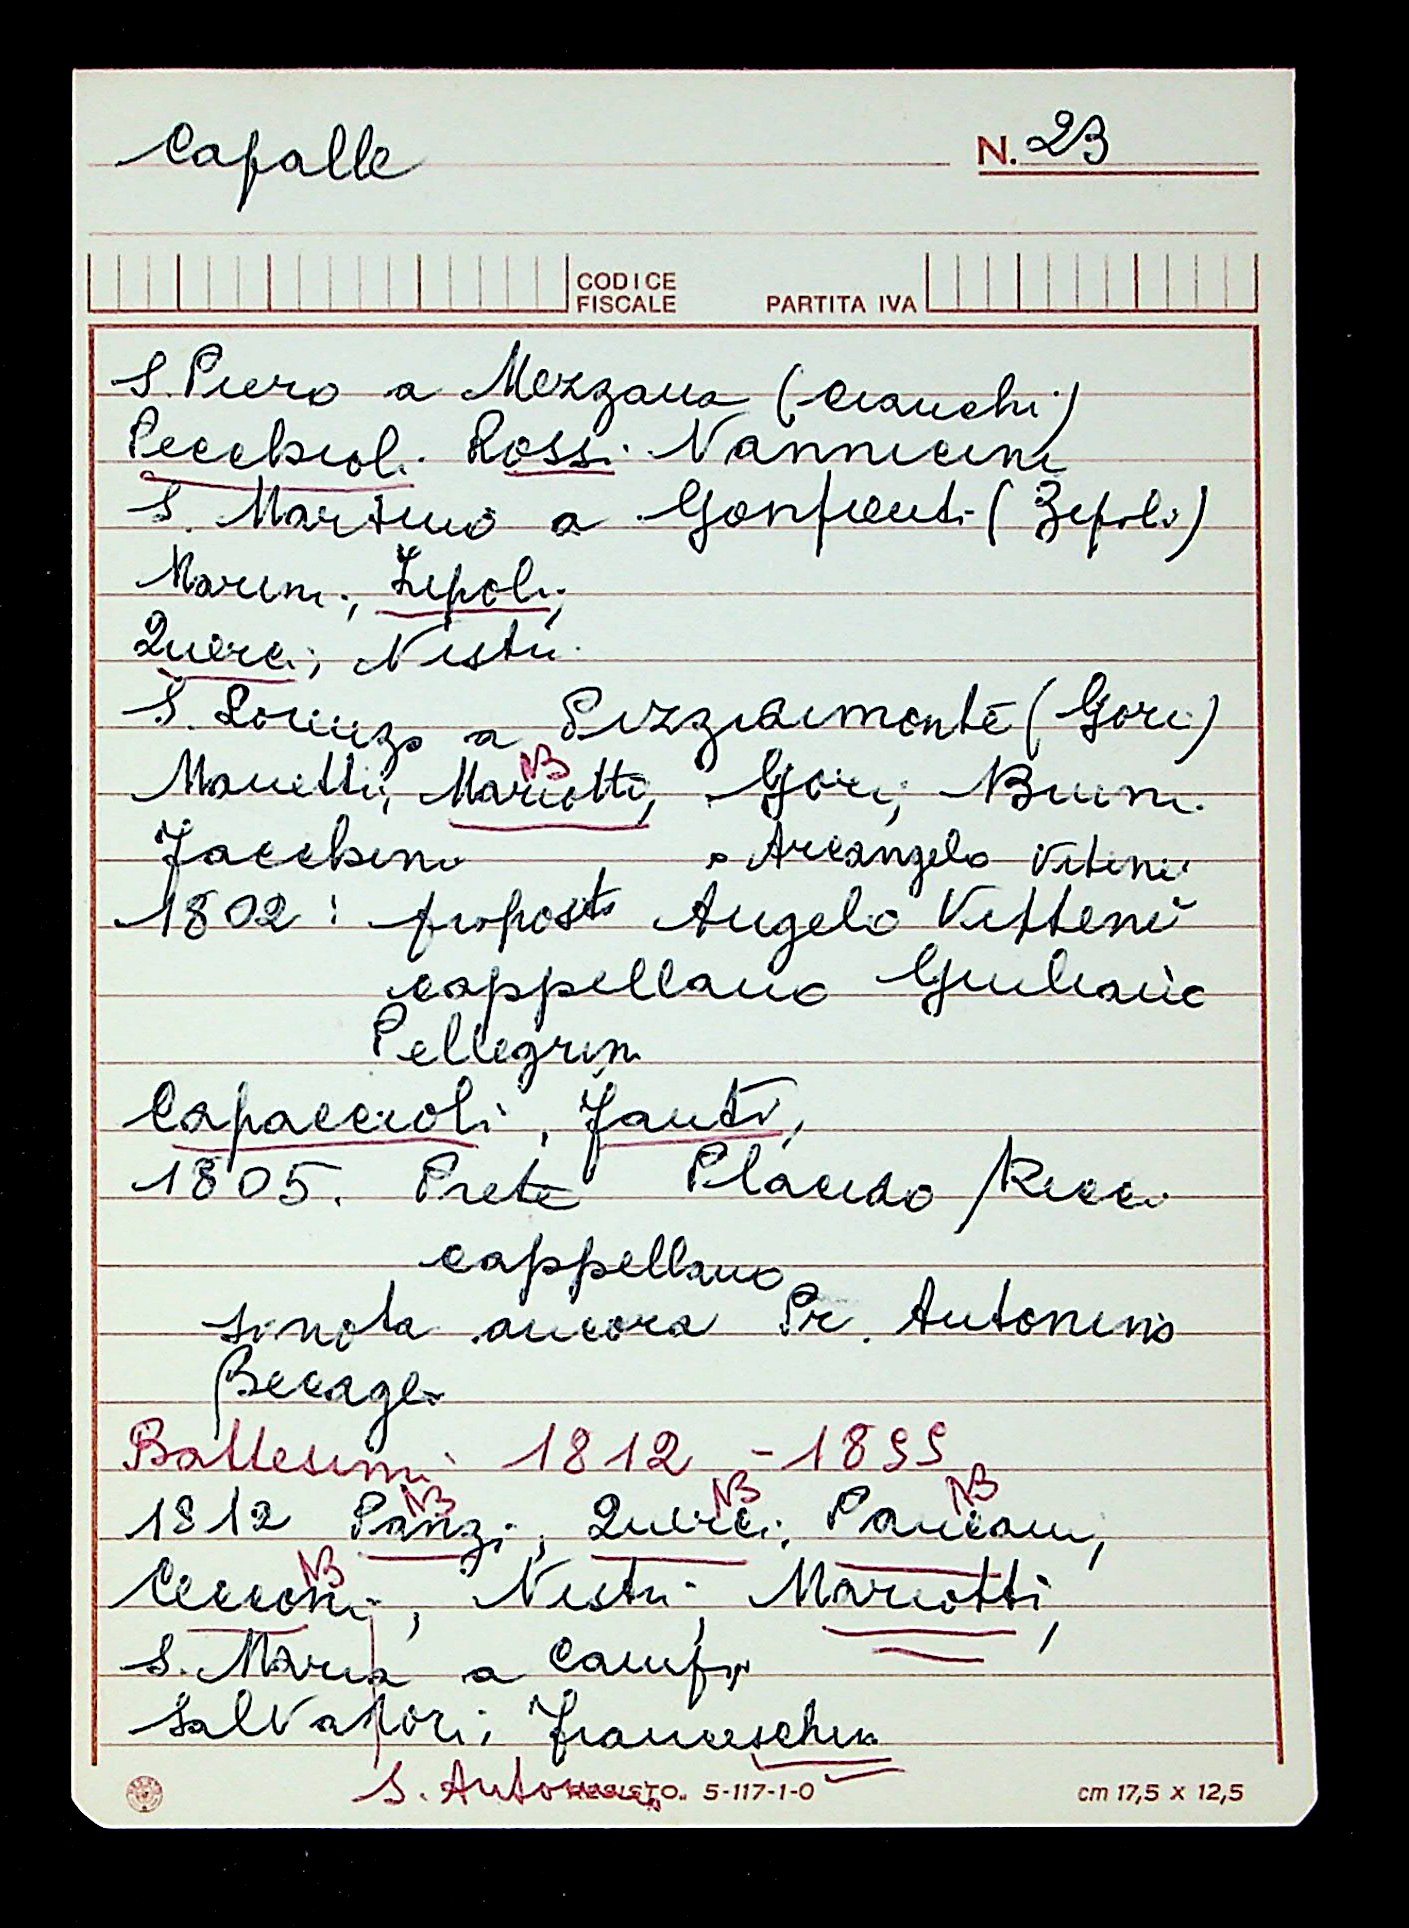 Capalle N. 23
CODICE FISCALE PARTITA IVA
S. Piero a Mezzana (Cianchi)
Pecchioli. Rossi. Nannicini
S. Martino a Gonfienti (Zipoli)
Marini; Zipoli;
Querci; Nistri.
S. Lorenzo a Pizzidimonte (Gori)
NB
Manetti; Mariotti, Gori; Bruni.
Facchini o Arcangelo Vitini
1802: proposto Angelo Vitteni
cappellano Giuliano
Pellegrini
Capaccioli, Fanti,
1805. Prete Placido Ricci
cappellano
si nota ancora Pr. Antonino
Becagli
Battesimi 1812 - 1899
NB NB NB
1812 Panzi, Querci; Panconi,
NB
Cecconi, Nistri, Mariotti,
S. Maria a Campi
Salvatori; Franceschini
S. Antonino 5-117-1-0 cm 17,5 x 12,5